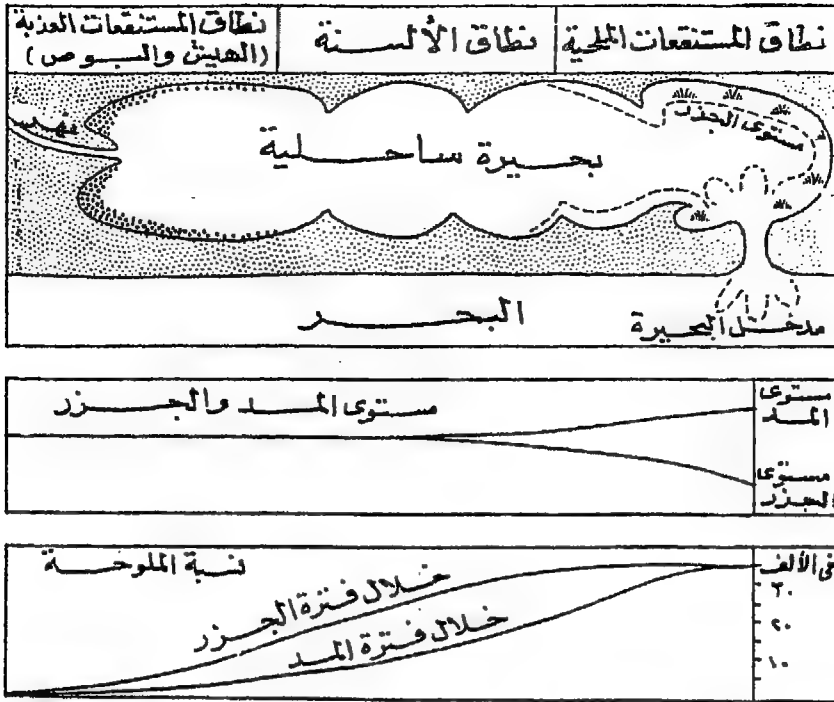 نطاق المستنقعات الملحية
نطاق الألسنة
نطاق المستنقعات العذبة
(الهيش والبوص)
مستوى الجذر
نهر
بحيرة ساحلية
البحر
مدخل البحيرة
مستوى المد والجزر
مستوى
المد
مستوى
الجزر
نسبة الملوحة
في الألف
٣٠
٢٠
١٠
خلال فترة الجزر
خلال فترة المد